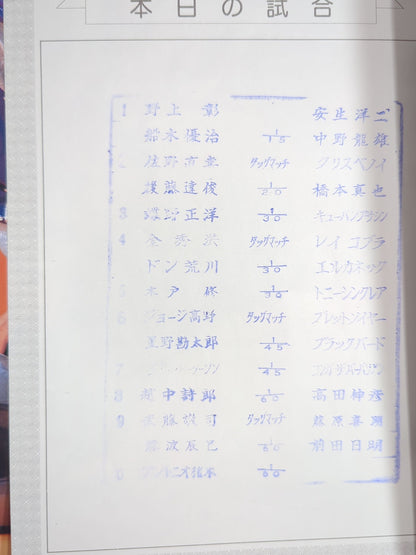 本日の試合
1 野上彰 安生洋二
船木優治 1/15 中野龍雄
2 佐野直 タッグマッチ クリスベノイ
後藤達俊 1/20 橋本真也
3 蝶野正洋 1/30 キューバンアサシン
4 金秀洪 タッグマッチ レイ コブラ
ドン荒川 1/30 エルカネック
5 木戸修 1/30 トニーシンクレア
6 ジョージ高野 タッグマッチ ブレットソイヤー
星野勘太郎 1/45 ブラックバード
7 1/45
8 越中詩郎 1/60 高田伸彦
9 武藤敬司 タッグマッチ 藤原喜明
藤波辰巳 1/60 前田日明
0 アントニオ猪木 1/60